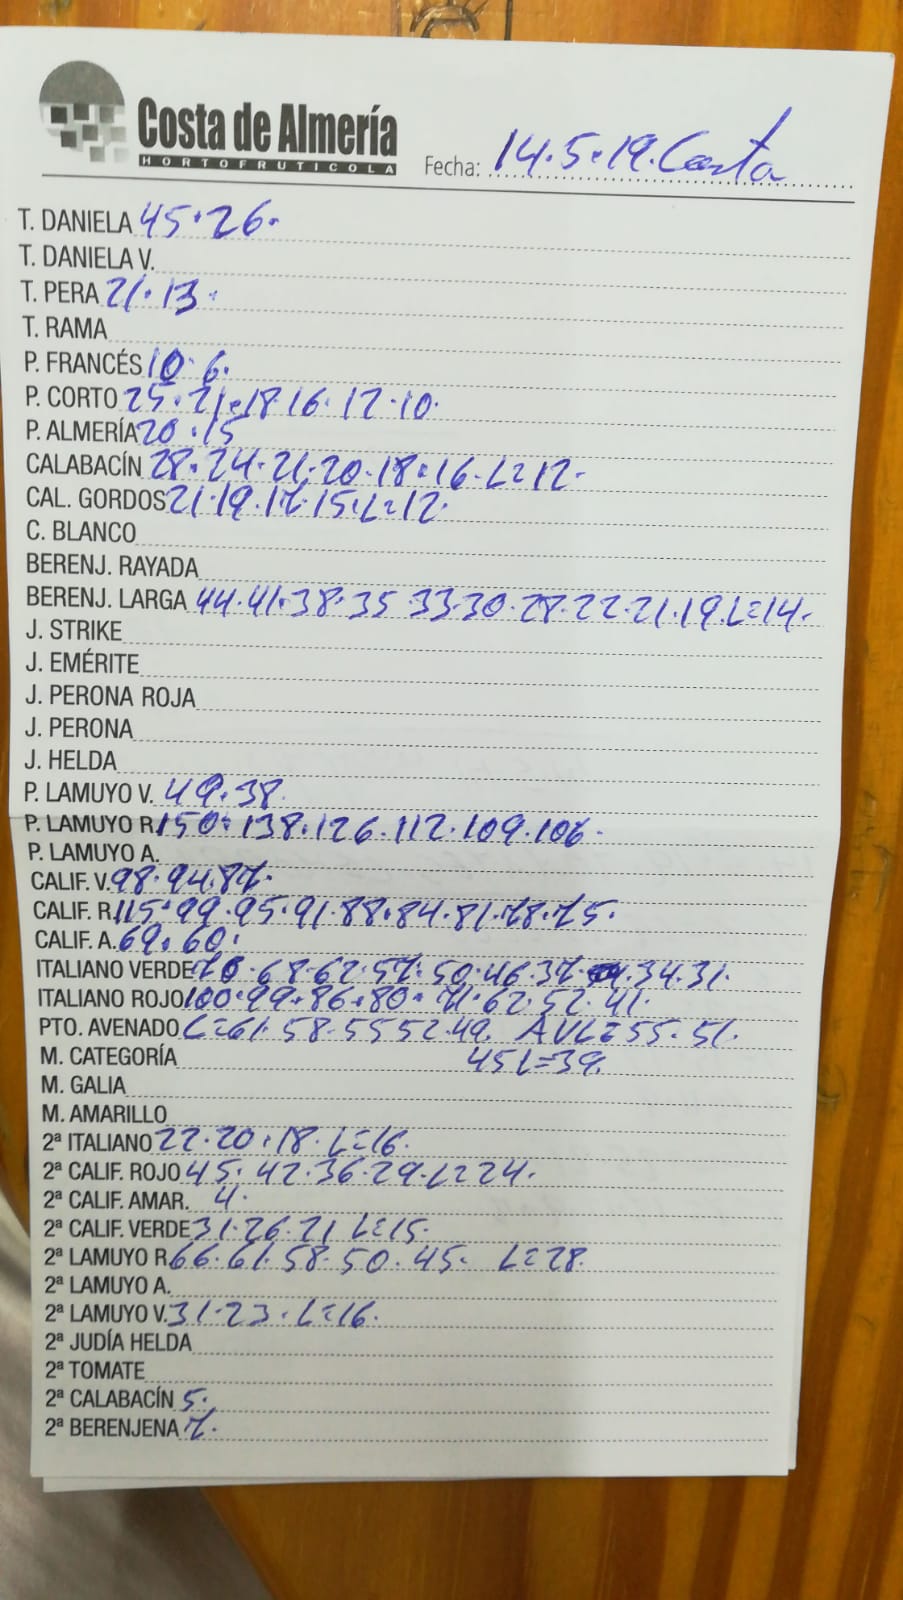 Costa de Almería
HORTOFRUTICOLA
Fecha: 14.5.19. Costa
T. DANIELA 45.26.
T. DANIELA V.
T. PERA 21.13.
T. RAMA
P. FRANCÉS 10.6.
P. CORTO 25.21.18 16.12.10.
P. ALMERÍA 20.15
CALABACÍN 28.24.21.20.18.16.L=12.
CAL. GORDOS 21.19.17.15.L=12.
C. BLANCO
BERENJ. RAYADA
BERENJ. LARGA 44.41.38.35 33.30.28.22.21.19.L=14.
J. STRIKE
J. EMÉRITE
J. PERONA ROJA
J. PERONA
J. HELDA
P. LAMUYO V. 49.38.
P. LAMUYO R. 150.138.126.112.109.106.
P. LAMUYO A.
CALIF. V. 98.94.87.
CALIF. R. 115.99.95.91.88.84.81.78.75.
CALIF. A. 69.60.
ITALIANO VERDE 70.68.62.57.50.46.37.34.31.
ITALIANO ROJO 100.99.86.80.71.62.52.41.
PTO. AVENADO L=61.58.55 52.49. AVL=55.51.
M. CATEGORÍA 45 L=39.
M. GALIA
M. AMARILLO
2ª ITALIANO 22.20.18.L=16.
2ª CALIF. ROJO 45.42.36.29.L=24.
2ª CALIF. AMAR. 4.
2ª CALIF. VERDE 31.26.21 L=15.
2ª LAMUYO R. 66.61.58.50.45. L=28.
2ª LAMUYO A.
2ª LAMUYO V. 31.23.L=16.
2ª JUDÍA HELDA
2ª TOMATE
2ª CALABACÍN 5.
2ª BERENJENA 7.